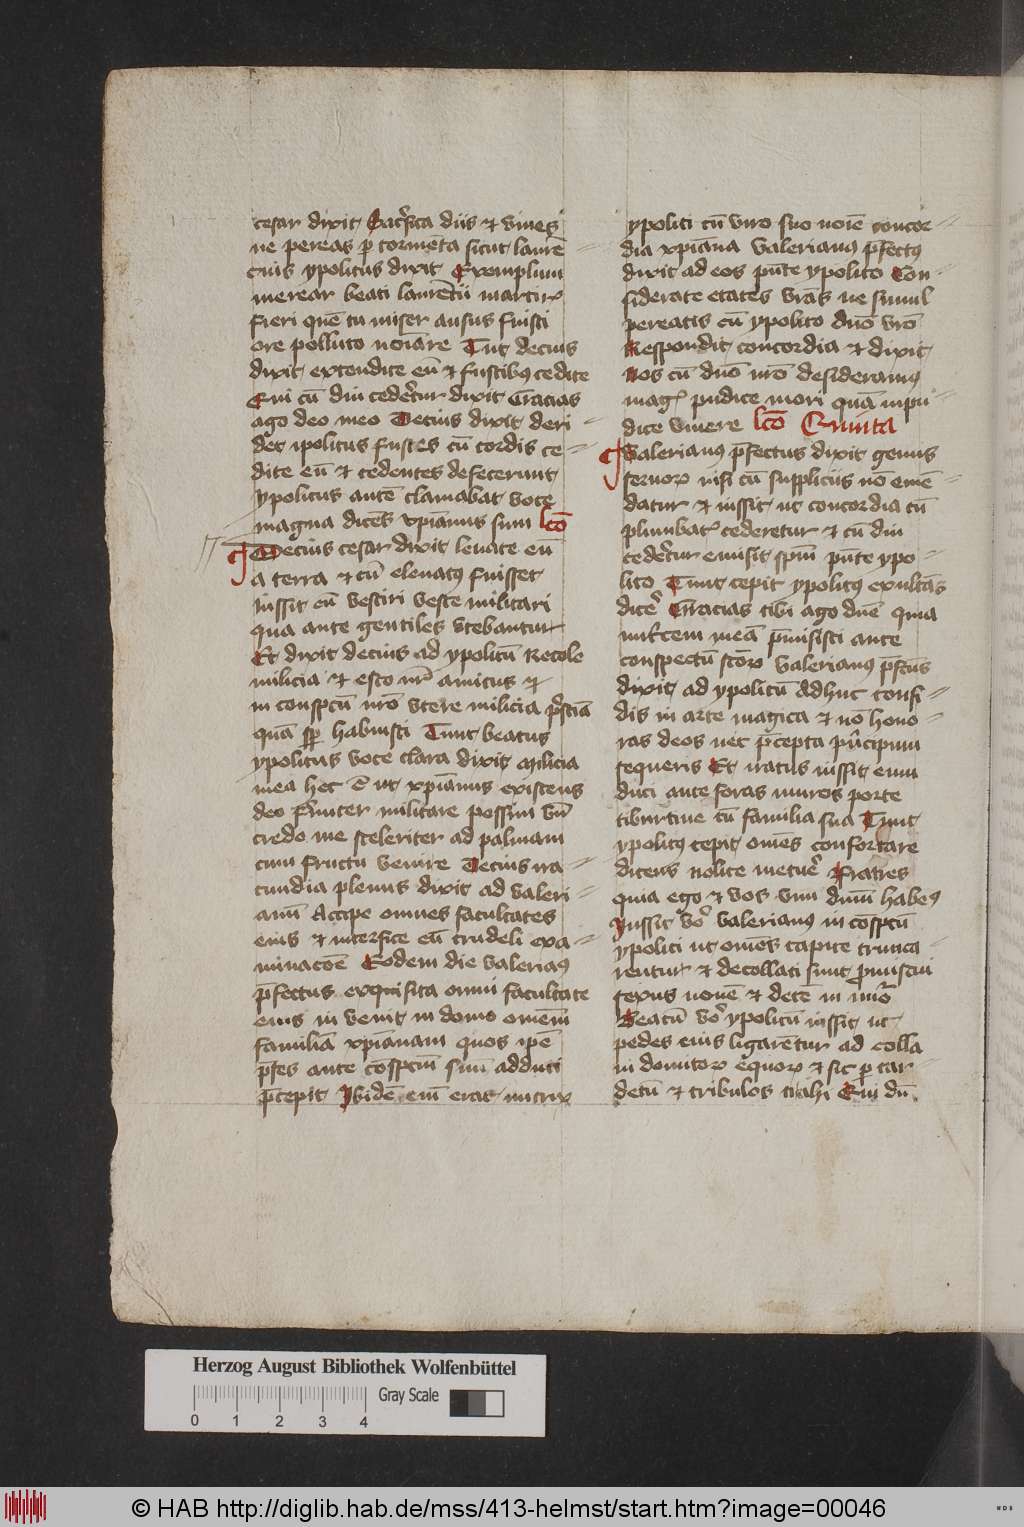 cesar dixit Sacrifica diis et viues
ne pereas p tormēta sicut laurē
cius ypolitus dixit Exemplum
merear beati laurētii martiris
fieri quē tu miser ausus fuisti
ore polluto noīare Tūc decius
dixit extendite eū et fustibus cedite
Qui cū diu cederetur dixit Gracias
ago deo meo Decius dixit deri
det ipolitus fustes cū cordis ce
dite eū et cedentes defecerunt
ypolitus autē clamabat voce
magna dicēs xpianus sum lcō
Decius cesar dixit leuate eū
a terra et cū eleuatus fuisset
iussit eū vestiri veste militari
qua ante gentiles vtebantur
Et dixit decius ad ypolitū Recole
milicia et esto nr̄ amicus et
in conspectu nr̄o vtere milicia pristiā
quā sp habuisti Tunc beatus
ypolitus voce clara dixit milicia
mea hec ē ut xpianus existens
deo firmiter militare possim vn̄
credo me sceleriter ad palmam
cum fructu venire Decius ira
cundia plenus dixit ad valeri
anū Accipe omnes facultates
eius et interfice eū crudeli exa
minacōe Eodem die valerianus
prefectus exquisita omni facultate
eius in venit in domo omēm
familiā xpianam quos ipē
pn̄tes ante cōspectum suū adduci
precepit Ibidē em̄ erat nutrix
ypoliti cū viro suo noīe concor
dia xpiana valerianus prefectus
dixit ad eos pn̄te ypolito Con
siderate etates vr̄as ne simul
pereatis cū ypolito dn̄o vr̄o
Respondit concordia et dixit
Nos cū dn̄o nr̄o desideramus
magis pudice mori quā inpu
dice viuere lcō Quinta
Valerianus prefectus dixit genus
seruorum nisi cū suppliciis nō emē
datur et iussit ut concordia cū
plumbatis cederetur et cū diu
cederetur emisit spm̄ pn̄te ypo
lito Tunc cepit ypolitus exultās
dicere Gracias tibi ago dn̄e quia
nutricem meā premisisti ante
conspectū sctōrum valerianus prefectus
dixit ad ypolitū Adhuc confi
dis in arte magica et nō hono
ras deos nec precepta principum
sequeris Et iratus iussit eum
duci ante foras muros porte
tiburtine cū familia sua Tunc
ypolitus cepit omēs confortare
dicens nolite metuere Fratres
quia ego et vos vnū deum habemus
Iussit vero valerianus in cōspectu
ypoliti ut omēs capite trunca
rentur et decollati sunt promiscui
sexus nouē et decē in numero
Beatū vero ypolitū iussit ut
pedes eius ligarētur ad colla
in domitorum equorum et sic p car
detū et tribulos trahi Qui dū
Herzog August Bibliothek Wolfenbüttel
Gray Scale
0 1 2 3 4
© HAB http://diglib.hab.de/mss/413-helmst/start.htm?image=00046